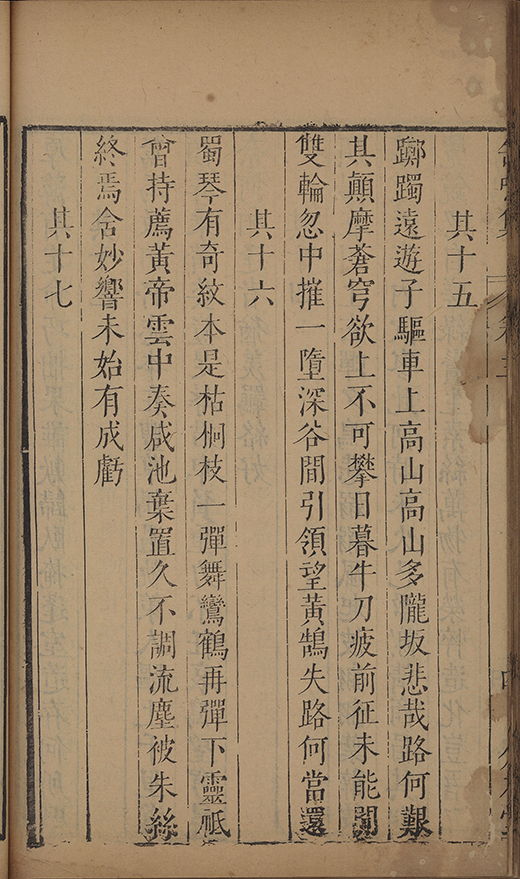 其十五
躑躅遠遊子驅車上高山高山多隴坂悲哉路何艱
其顛摩蒼穹欲上不可攀日暮牛刀疲前征未能閒
雙輪忽中摧一墮深谷間引領望黃鵠失路何當還
其十六
蜀琴有奇紋本是枯桐枝一彈舞鸞鶴再彈下靈祗
曾持薦黃帝雲中奏咸池棄置久不調流塵被朱絲
終焉含妙響未始有成虧
其十七